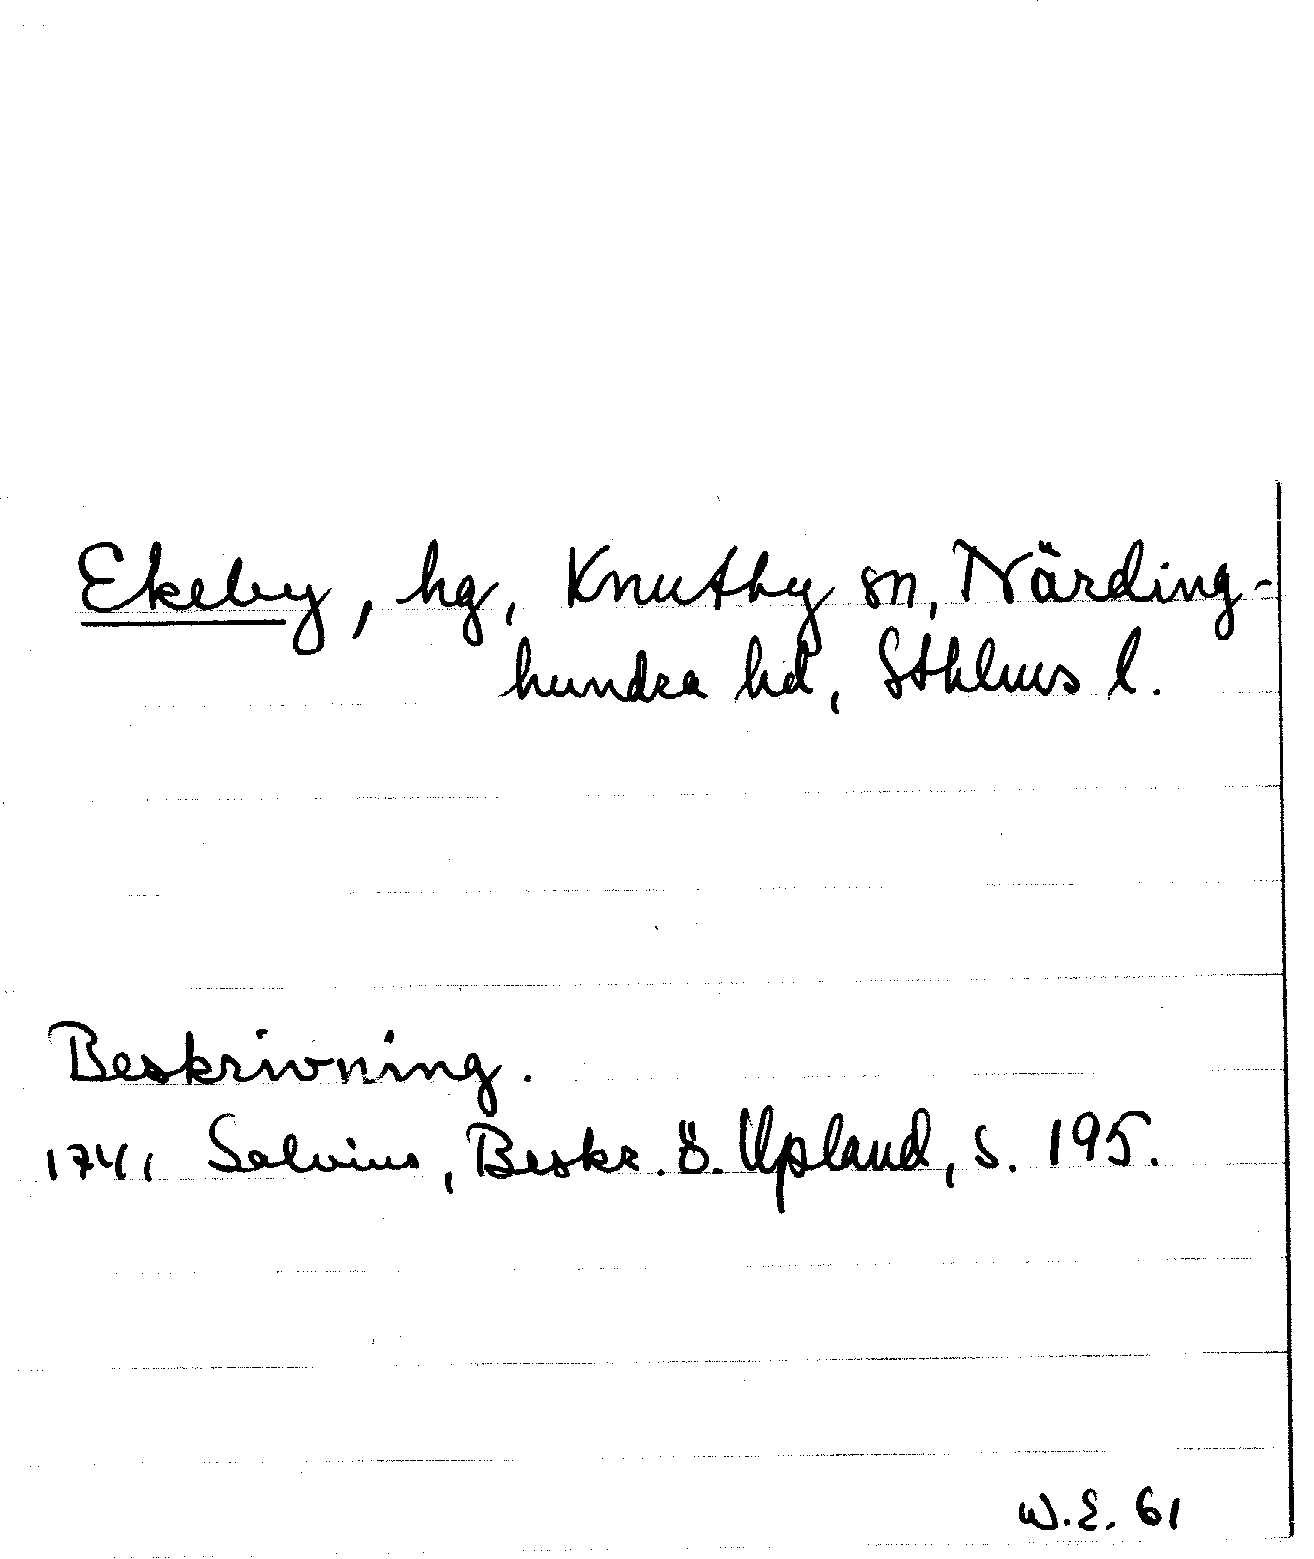 Ekeby, hg, Knutby sn, Närding-
hundra hd, Sthlms l.
Beskrivning.
1741 Salvius, Beskr. ö. Upland, s. 195.
W.E. 61